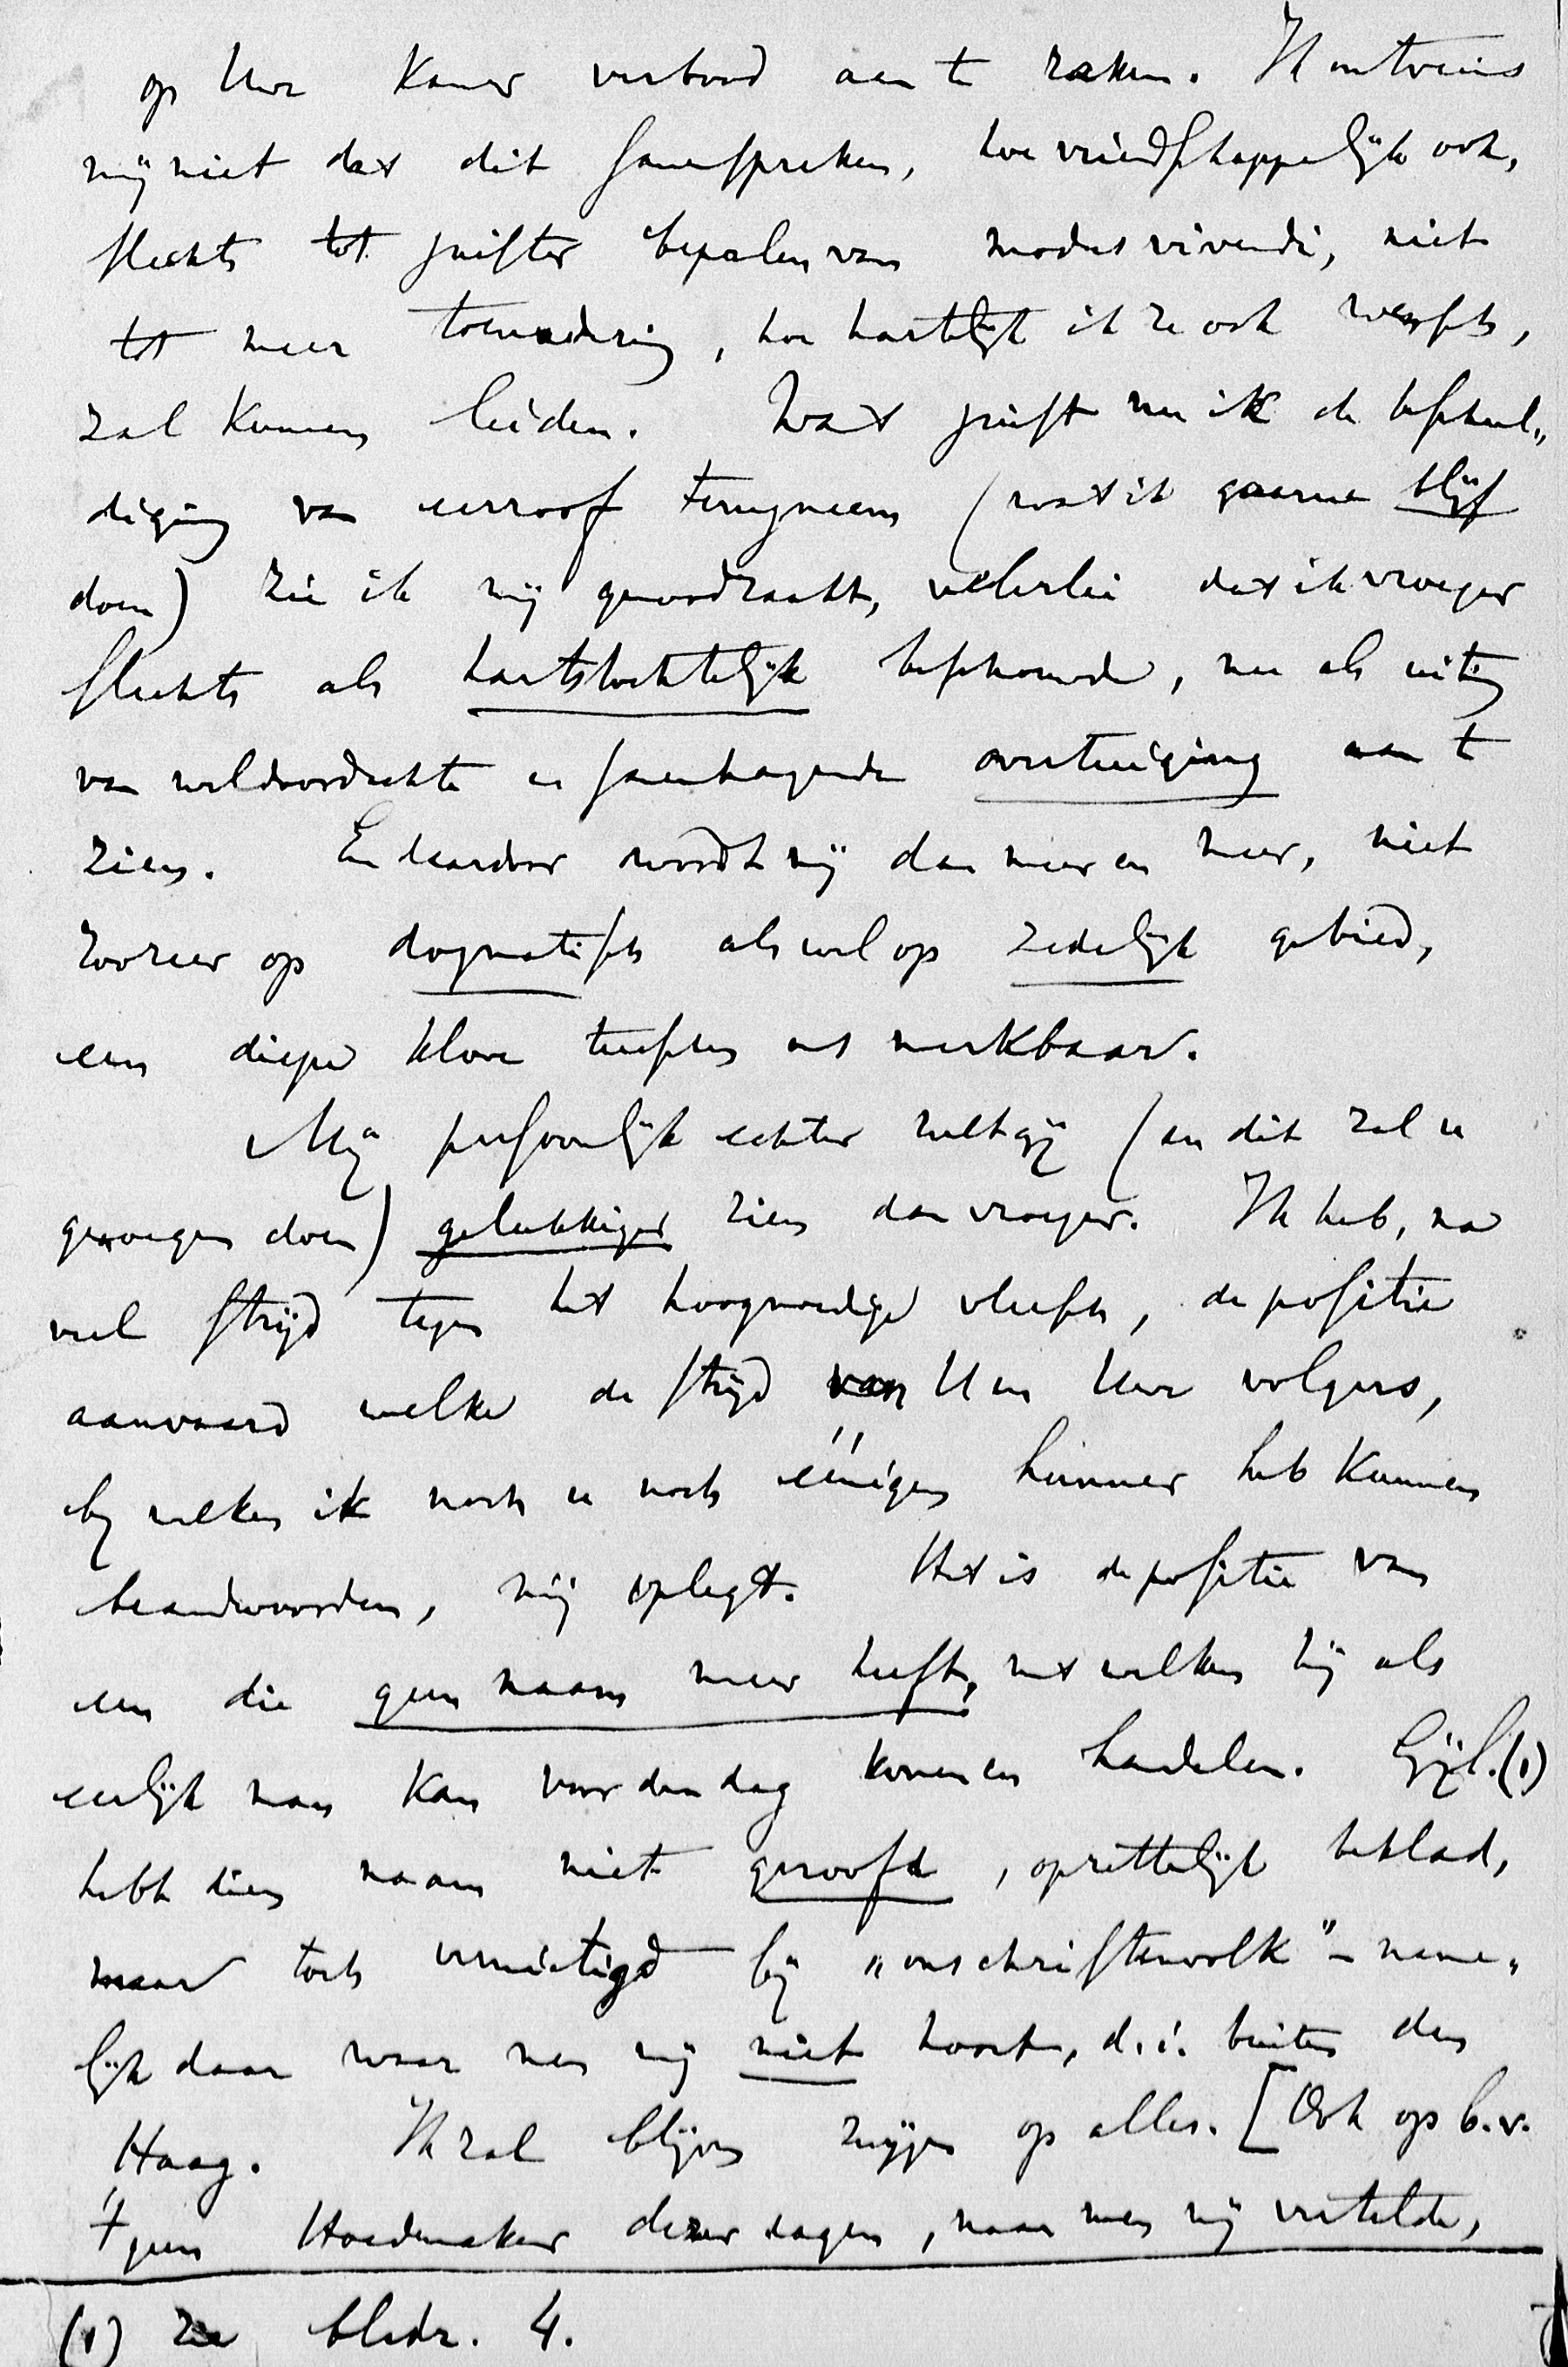 op Uwe Kamer verbood aan te raken. Ik ontveins
mij niet dat dit samenspreken, hoe vriendschappelijk ook,
slechts tot juister bepalen van modus vivendi, niet
tot meer toenadering, hoe hartelijk ik ze ook wensch,
zal kunnen leiden. Want juist nu ik de beschul„
diging van eerroof terugneem (wat ik gaarne blijf
doen) zie ik mij genoodzaakt, velerlei dat ik vroeger
slechts als hartstochtelijk beschouwde, nu als uiting
van weldoordachte en samenhangende overtuiging aan te
zien. En daardoor wordt mij dan meer en meer, niet
zoozeer op dogmatisch als wel op zedelijk gebied,
een diepe klove tusschen ons merkbaar.
Mij persoonlijk echter zult gij (en dit zal u
genoegen doen) gelukkiger zien dan vroeger. Ik heb, na
veel strijd tegen het hoogmoedige vleesch, de positie
aanvaard welke de strijd van U en Uwe volgers,
bij welken ik noch u noch éénigen hunner heb kunnen
beandwoorden, mij oplegt. Het is de positie van
een die geen naam meer heeft, met welken hij als
eerlijk man kan voor den dag komen en handelen. Gijl. (1)
hebt dien naam niet geroofd, opzettelijk beklad,
maar toch vernietigd bij „ons christenvolk” – name„
lijk daar waar men mij niet hoort, d.i. buiten den
Haag. Ik zal blijven zwijgen op alles. [Ook op b.v.
'tgeen Hoedemaker dezer dagen, naar men mij vertelde,
(1) Zie bladz. 4.